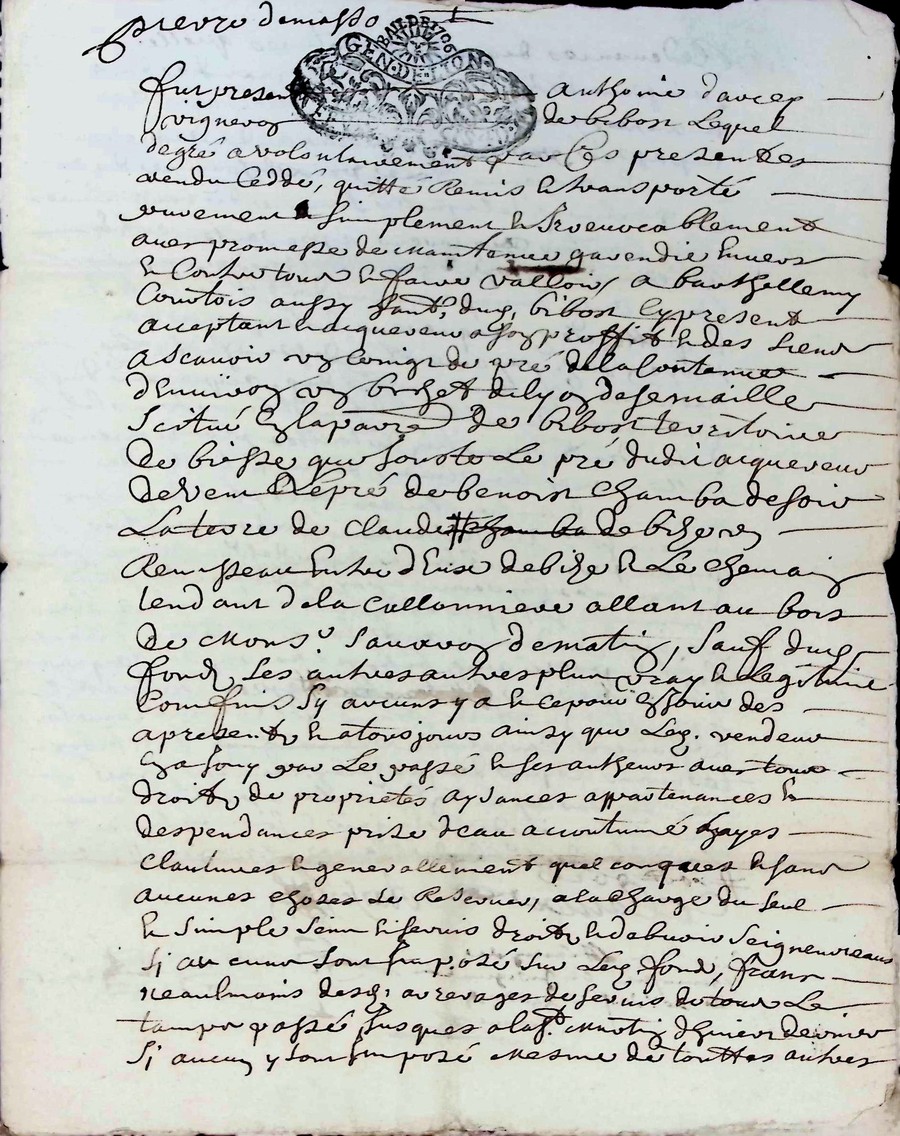 pierre demasso
BAIL DE 1706
GEN DE LION
fut present anthoine
vigneron de bibost Lequel
degré a volontairement par Ces presentes
vendu Ceddé, quitté Remis et transporté
purement et simplement et Irrevocablement
avec promesse de maintenir garendie Envers
et Contre tous et faire valloir, a barthellemy
Courtois aussy dud. bibost Cy present
acceptant et acquereur a son proffit et des siens
ascavoir un de pré de la Contenue
un de semaille
scitué En la parr. de bibost territoire
de que Jouste Le pré dudit acquereur
de vent Le pré de benoist Chamba de soir
La terre de Claude chamba de bize un
Ruisseau Entre deux de bize et Le Chemain
tendant de la Collonniere allant au bois
de Mons.r de matin, sauf dud.
fond, Les autres autres plus vray et Legitime
Confins sy aucuns y a et ce pour En Jouir des
a present et a tousjours ainsy que Led. vendeur
En a Jouy par Le passé et ses autheurs avec tous
droits de proprietés aysances appartenances et
despendances prise d'eau accoutumé hayes
Claulures et generallement quel conques et sans
aucunes choses se Reserver, a la Charge du seul
et simple servis droits et debvoir seigneuriaux
si aucuns sont Imposé sur Led. fond, franc
neaulmoins desd. arrerages de servis de tous Le
temps passé Jusques a la st. Martin d'hiver dernier
si aucun y sont Imposé mesme de touttes autres